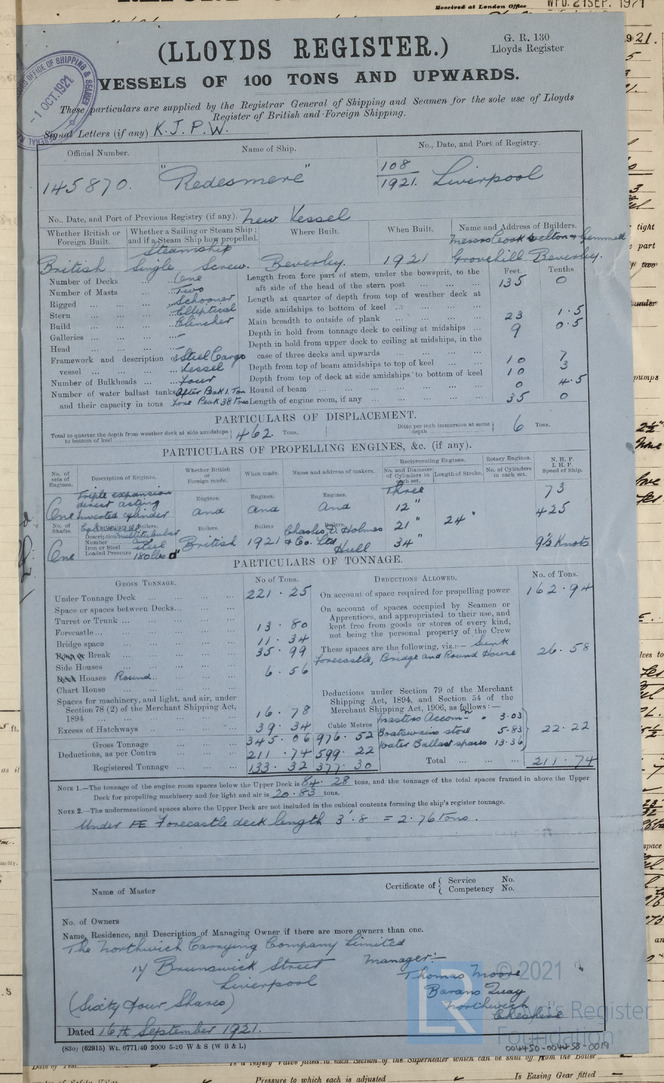 Received at London Office WED. 21 SEP. 1921
(LLOYDS REGISTER.)
G. R. 130
Lloyds Register
VESSELS OF 100 TONS AND UPWARDS.
OFFICE OF SHIPPING & SEAMEN
1 OCT. 1921
These particulars are supplied by the Registrar General of Shipping and Seamen for the sole use of Lloyds
Register of British and Foreign Shipping.
Signal Letters (if any) K. J. P. W.
Official Number. Name of Ship. No., Date, and Port of Registry.
145870. "Redesmere" 108/1921. Liverpool
No., Date, and Port of Previous Registry (if any). New Vessel
Whether British or Foreign Built. Whether a Sailing or Steam Ship; and if a Steam Ship how propelled. Where Built. When Built. Name and Address of Builders.
British Steamship Single Screw. Beverley. 1921 Messrs Cook Welton & Gemmell Grovehill Beverley.
Number of Decks ... One
Number of Masts ... Two
Rigged ... Schooner
Stern ... Elliptical
Build ... Clincher
Galleries ... -
Head ... -
Framework and description of vessel ... Steel Cargo Vessel
Number of Bulkheads ... Four
Number of water ballast tanks, and their capacity in tons After Peak 1. Ton Fore Peak 38 tons
Feet. Tenths
Length from fore part of stem, under the bowsprit, to the aft side of the head of the stern post 135 0
Length at quarter of depth from top of weather deck at side amidships to bottom of keel
Main breadth to outside of plank 23 1.5
Depth in hold from tonnage deck to ceiling at midships 9 0.5
Depth in hold from upper deck to ceiling at midships, in the case of three decks and upwards
Depth from top of beam amidships to top of keel 10 7
Depth from top of deck at side amidships to bottom of keel 10 3
Round of beam 0 4.5
Length of engine room, if any 35 0
PARTICULARS OF DISPLACEMENT.
Total to quarter the depth from weather deck at side amidships to bottom of keel 462 Tons. Ditto per inch immersion at same depth 6 Tons.
PARTICULARS OF PROPELLING ENGINES, &c. (if any).
No. of sets of Engines. Description of Engines. Whether British or Foreign made. When made. Name and address of makers. Reciprocating Engines. Rotary Engines. N. H. P. I. H. P. Speed of Ship.
No. and Diameter of Cylinders in each set. Length of Stroke. No. of Cylinders in each set.
One Triple expansion direct acting Inverted cylinder Engines. and Engines. and Engines. and Three 12" 73 425
No. of Shafts. Description Number Iron or Steel Loaded Pressure Boilers. Boilers Boilers Boilers.
One steel 180 lbs British 1921 Charles D. Holmes & Co. Ltd Hull 21" 34" 24" 9.5 Knots
PARTICULARS OF TONNAGE.
GROSS TONNAGE. No of Tons. DEDUCTIONS ALLOWED. No. of Tons.
Under Tonnage Deck ... 221.25
On account of space required for propelling power 162.94
Space or spaces between Decks...
Turret or Trunk ...
Forecastle ... 13.80
Bridge space ... 11.34
Break 35.99
Side Houses
Houses Round.. 6.56
Chart House
Spaces for machinery, and light, and air, under Section 78 (2) of the Merchant Shipping Act, 1894 16.78
Excess of Hatchways 39.34 Cubic Metres
Gross Tonnage 345.06 976.52
Deductions, as per Contra 211.74 599.22
Registered Tonnage 133.32 377.30
On account of spaces occupied by Seamen or Apprentices, and appropriated to their use, and kept free from goods or stores of every kind, not being the personal property of the Crew
These spaces are the following, viz.:— Sunk Forecastle, Bridge and Round House 26.58
Deductions under Section 79 of the Merchant Shipping Act, 1894, and Section 54 of the Merchant Shipping Act, 1906, as follows:—
Masters Accomn 3.03
Boatswains store 5.83
Water Ballast spaces 13.36
22.22
Total 211.74
NOTE 1.—The tonnage of the engine room spaces below the Upper Deck is 64.28 tons, and the tonnage of the total spaces framed in above the Upper
Deck for propelling machinery and for light and air is 20.83 tons.
NOTE 2.—The undermentioned spaces above the Upper Deck are not included in the cubical contents forming the ship's register tonnage.
Under Forecastle deck length 3'.8 = 2.76 tons.
Name of Master Certificate of { Service No. Competency No.
No. of Owners
Name, Residence, and Description of Managing Owner if there are more owners than one.
The Northwich Carrying Company Limited
17 Brunswick Street
Liverpool
(Sixty four Shares)
Manager:-
Thomas Moore
Barons Quay
Northwich
Cheshire
Dated 16th September 1921.
(830) (62915) Wt. 6771/40 2000 5-20 W & S (W B & L)
© 2021
Lloyd's Register
Foundation
004450-004458-0019
Pressure to which each is adjusted
Is Easing Gear fitted